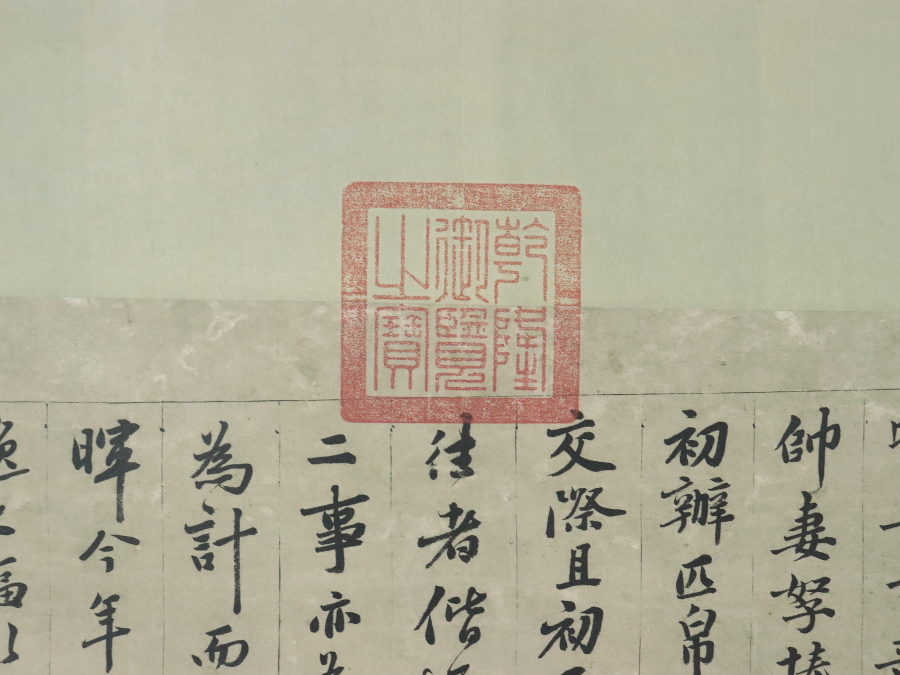 乾隆
御覽
之寶
帥妻孥
初辦匹帛
交際且初
往者偕
二事亦
為計而
暉今年